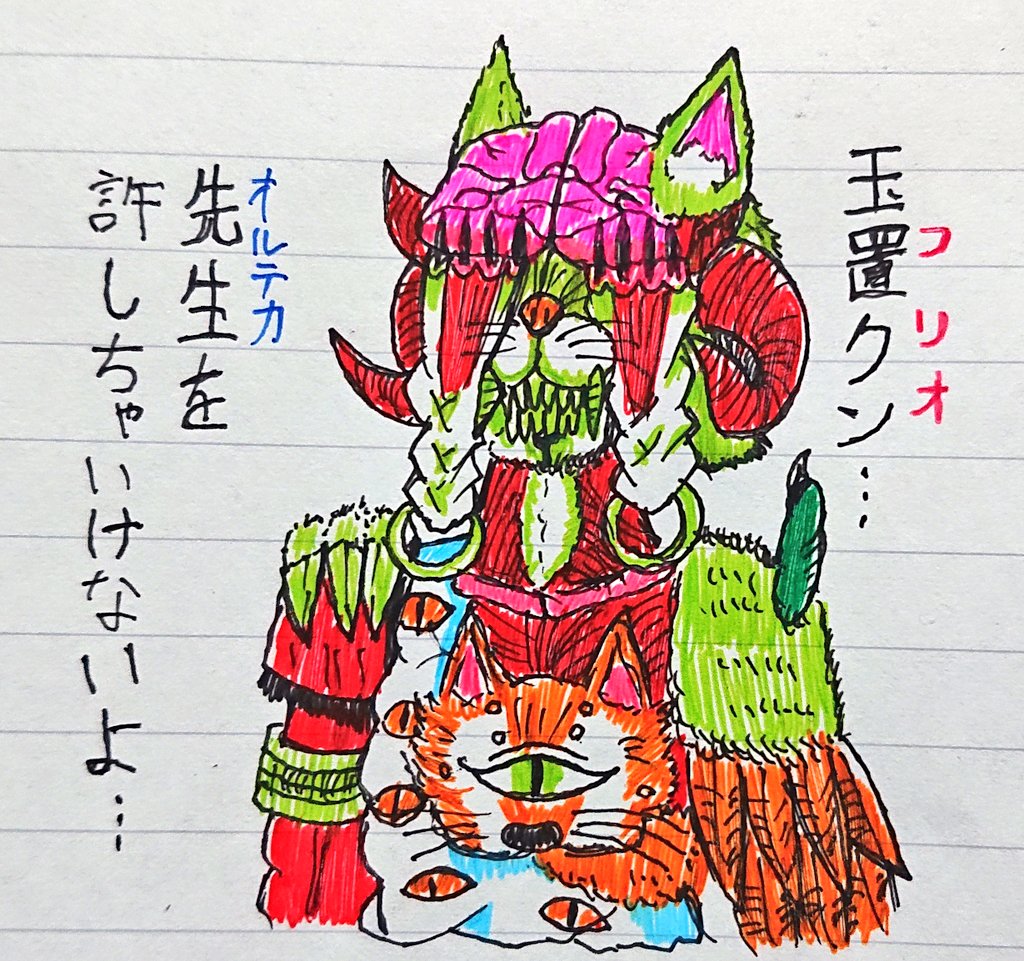 玉置クン…
フリオ
オルテカ
先生を
許しちゃいけないよ…